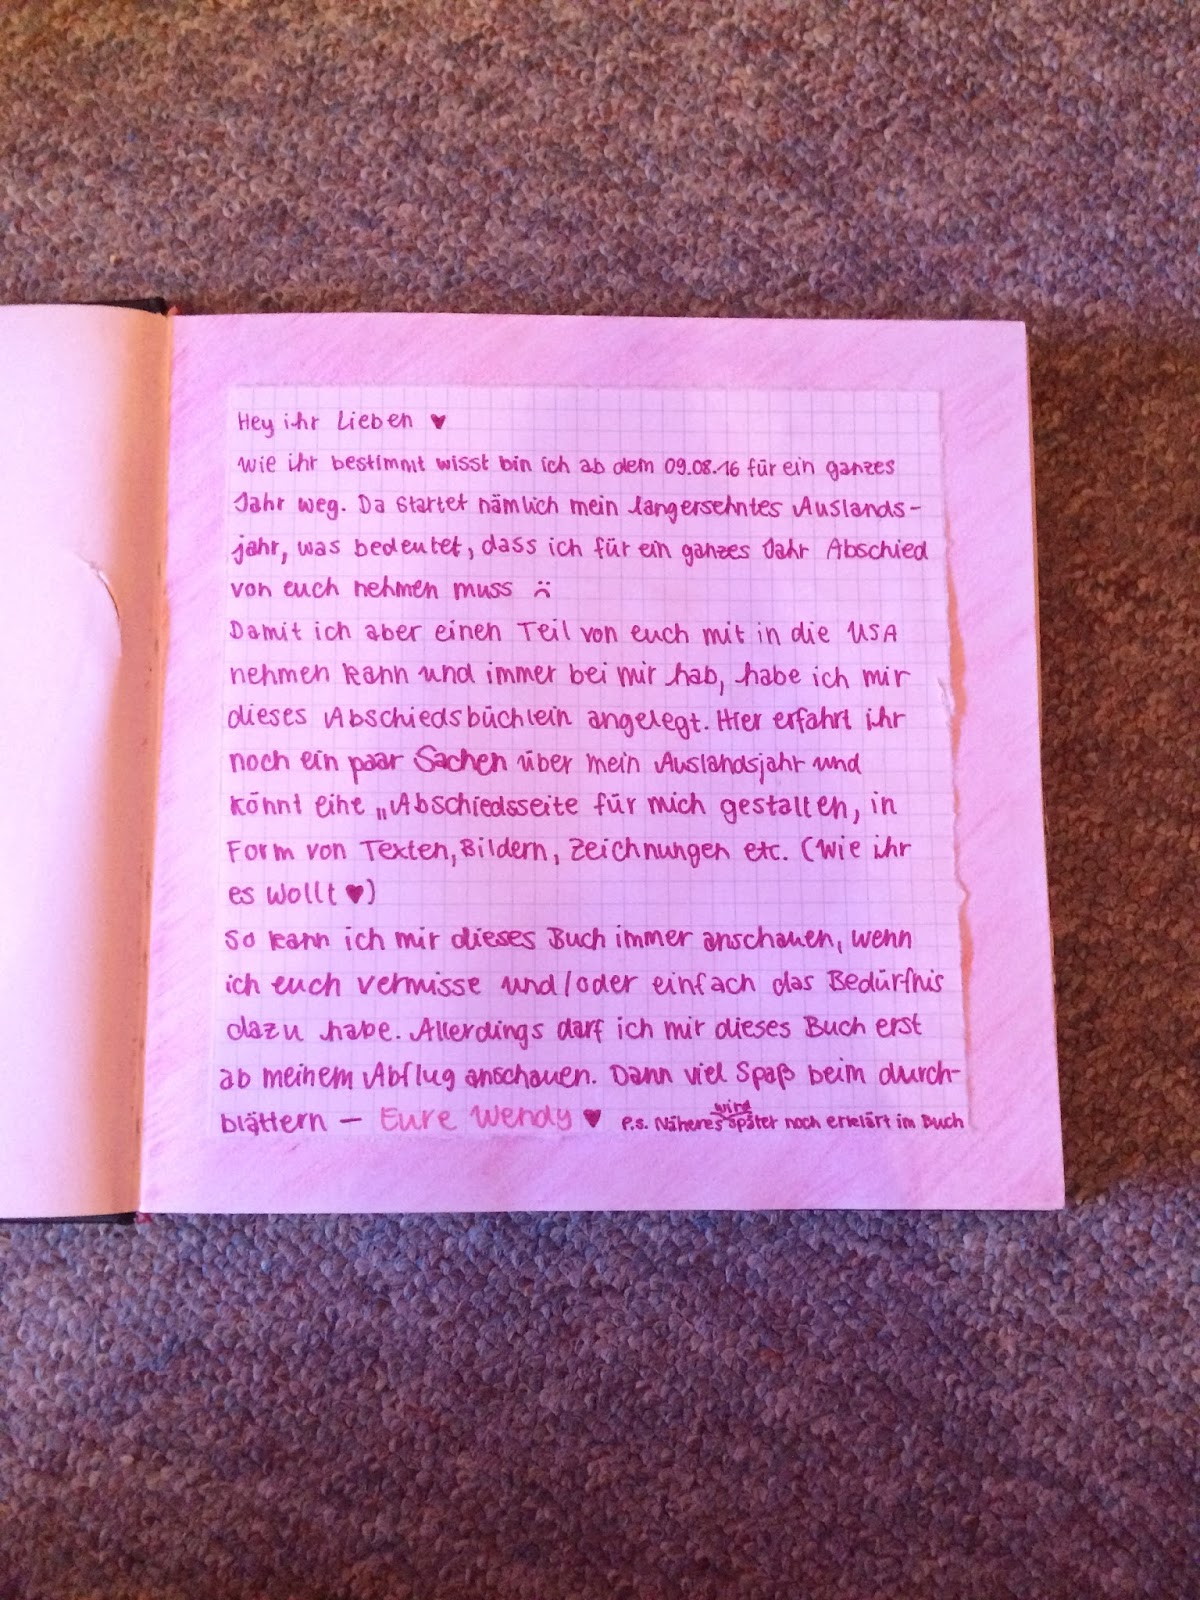 Hey ihr Lieben ♥
Wie ihr bestimmt wisst bin ich ab dem 09.08.16 für ein ganzes
Jahr weg. Da startet nämlich mein langersehntes Auslands-
jahr, was bedeutet, dass ich für ein ganzes Jahr Abschied
von euch nehmen muss :(
Damit ich aber einen Teil von euch mit in die USA
nehmen kann und immer bei mir hab, habe ich mir
dieses Abschiedsbüchlein angelegt. Hier erfahrt ihr
noch ein paar Sachen über mein Auslandsjahr und
könnt eine „Abschiedsseite für mich gestalten, in
Form von Texten, Bildern, Zeichnungen etc. (Wie ihr
es wollt ♥)
So kann ich mir dieses Buch immer anschauen, wenn
ich euch vermisse und/oder einfach das Bedürfnis
dazu habe. Allerdings darf ich mir dieses Buch erst
ab meinem Abflug anschauen. Dann viel Spaß beim durch-
blättern – Eure Wendy ♥ P.s. Näheres wird später noch erklärt im Buch